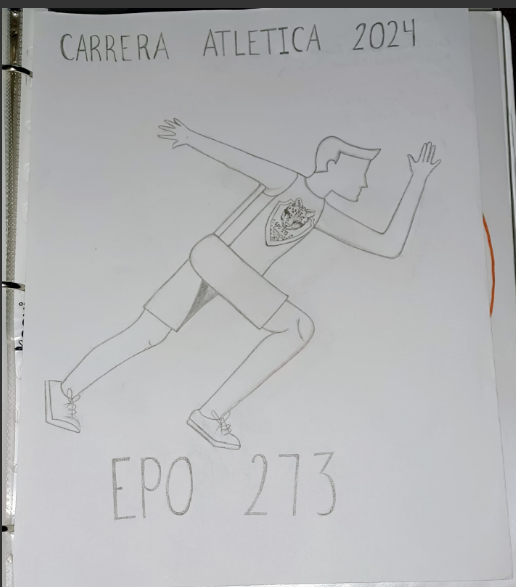 CARRERA ATLETICA 2024
EPO 273